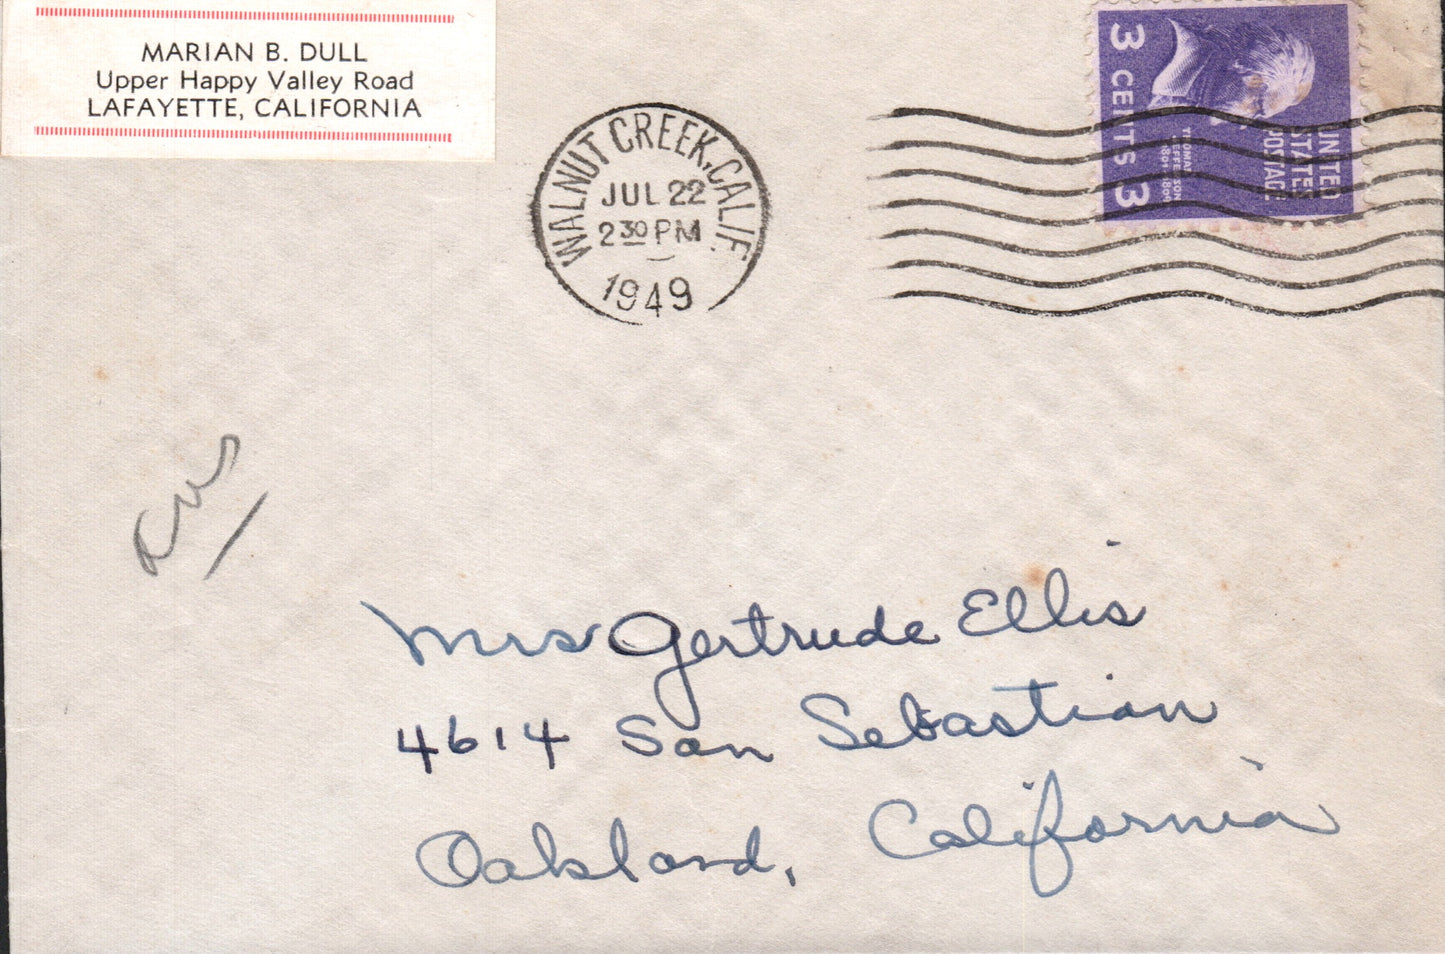 MARIAN B. DULL
Upper Happy Valley Road
LAFAYETTE, CALIFORNIA
WALNUT CREEK, CALIF.
JUL 22
2 30 PM
1949
3 CENTS 3
THOMAS JEFFERSON
1801-1809
UNITED
STATES
POSTAGE
Mrs Gertrude Ellis
4614 San Sebastian
Oakland, California